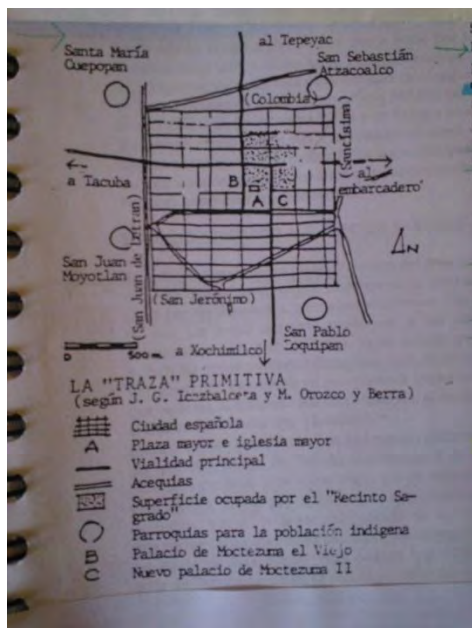 al Tepeyac
Santa María
Cuepopan
San Sebastián
Atzacoalco
(Colombia)
(Santísima)
a Tacuba
B
A
C
al
embarcadero
San Juan
Moyotlan
(San Juan de Letran)
N
(San Jerónimo)
San Pablo
Zoquipan
0
500 m.
a Xochimilco
LA "TRAZA" PRIMITIVA
(según J. G. Icazbalceta y M. Orozco y Berra)
Ciudad española
A Plaza mayor e iglesia mayor
Vialidad principal
Acequias
Superficie ocupada por el "Recinto Sa-
grado"
Parroquias para la población indígena
B Palacio de Moctezuma el Viejo
C Nuevo palacio de Moctezuma II